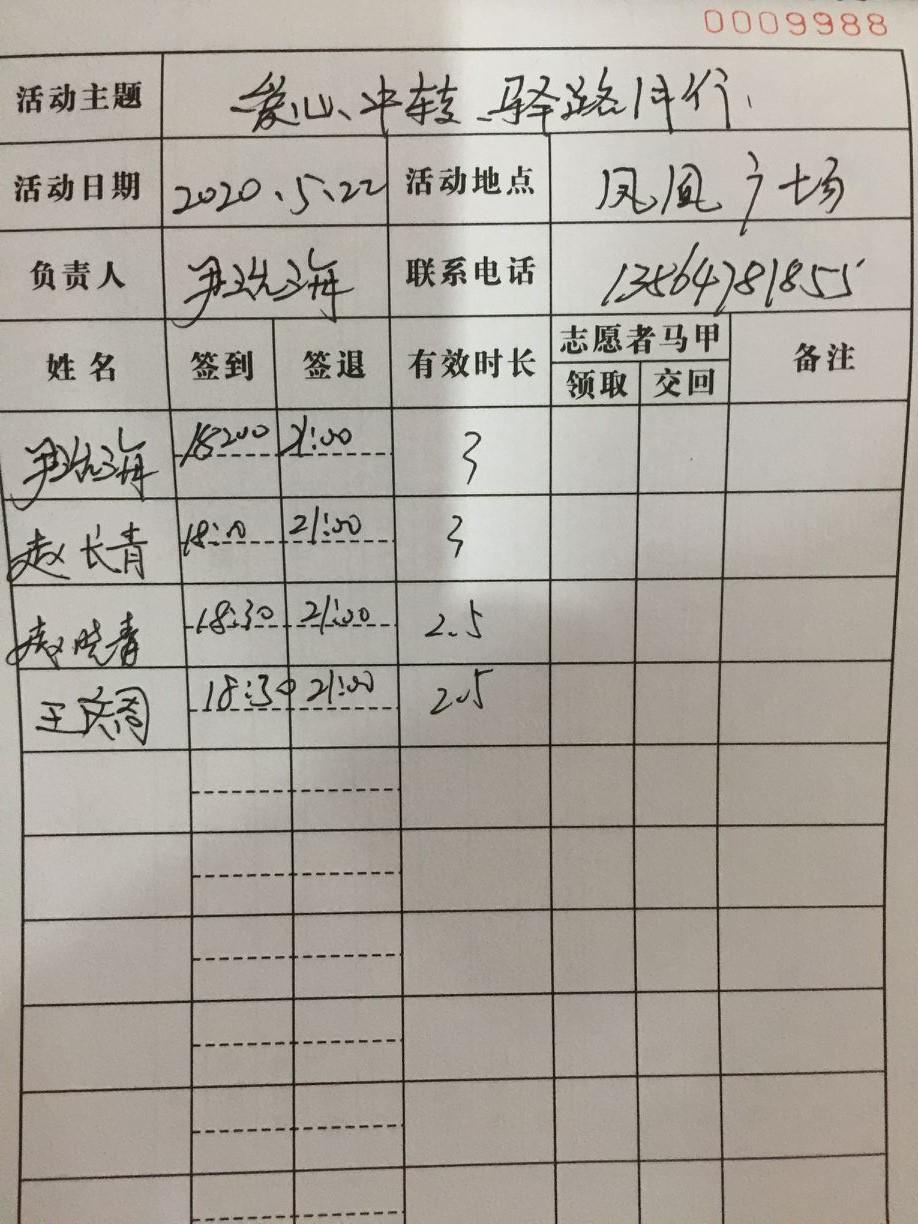 0009988
活动主题 爱心中转、驿路同行
活动日期 2020.5.22 活动地点 凤凰广场
负责人 联系电话 13564781855
姓名 签到 签退 有效时长 志愿者马甲 备注
领取 交回
18:00 21:00 3
赵长青 18:00 21:00 3
赵晓春 18:30 21:00 2.5
18:30 21:00 2.5